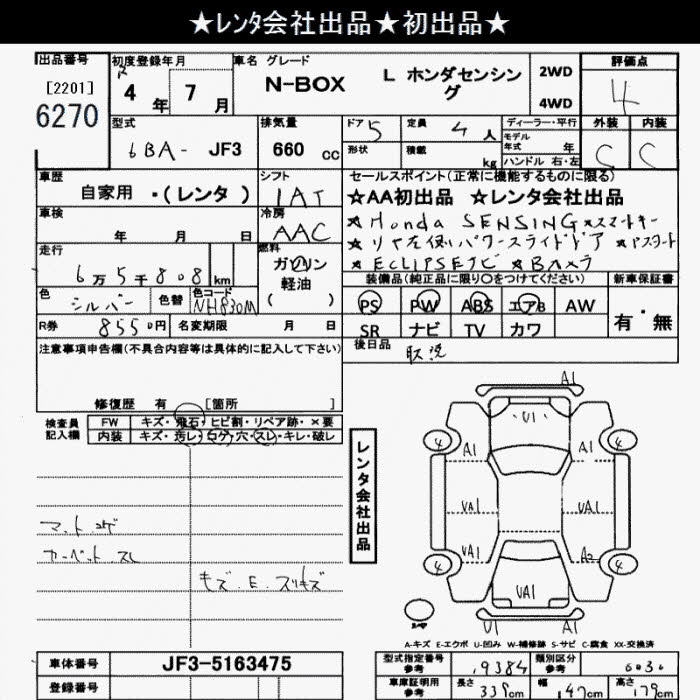 ★レンタ会社出品★初出品★
出品番号 初度登録年月 車名 グレード 評価点
[2201]
6270
R 4 年 7 月
N-BOX L ホンダセンシング
2WD
4WD
4
型式 排気量 ドア 5 定員 4 人 ディーラー・平行 外装 内装
6BA- JF3 660 cc
形状 積載 kg
モデル年式 年
ハンドル 右・左
C C
車歴 シフト セールスポイント(正常に機能するものに限る)
自家用 ・(レンタ ) IAT
★AA初出品 ★レンタ会社出品
車検 冷房
年 月 日 AAC
★Honda SENSING★スマートキー
★リヤ左側パワースライドドア ★Pスタート
★ECLIPSEナビ ★Bカメラ
走行 燃料
6万5千808 km
ガソリン
軽油
( )
装備品(純正品に限り○をつけてください) 新車保証書
色 シルバー 色替 色コード NH830M
PS PW ABS エアB AW
有・無
R券 8550円 名変期限 月 日
SR ナビ TV カワ
注意事項申告欄(不具合内容等は具体的に記入して下さい)
後日品 取説
修復歴 有 [箇所 ]
検査員記入欄
FW キズ・飛石・ヒビ割・リペア跡・×要
内装 キズ・汚レ・コゲ・穴・スレ・キレ・破レ
マット コゲ
カーペット スレ
キズ.E.スリキズ
レンタ会社出品
A1
U1
4 4
A1 A1
UA1 UA1
UA1 A2
4 4
UA1
U1 A1
A-キズ E-エクボ U-凹み W-補修跡 S-サビ C-腐食 XX-交換済
車体番号 JF3-5163475
登録番号
型式指定番号 参考 19384 類別区分 参考 0030
車庫証明用 参考 長さ 339cm 幅 147cm 高さ 179cm